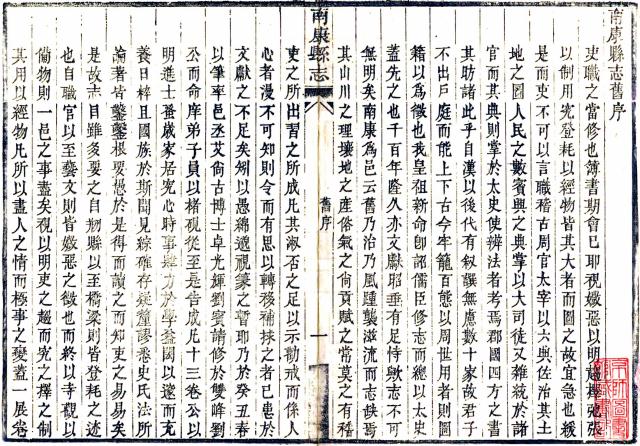 南康縣志舊序
吏職之當修也簿書期會已耶視媺惡以明趨擇弛張
以制用究登耗以經物皆其大者而圖之故宜急也援
是而吏不可以言職稽古周官太宰以六典佐治其土
地之圖人民之數賓興之典掌以大司徒又雜統於諸
官而其典則掌於太史使辨法者考焉郡國四方之書
其昉諸此乎自漢以後代有叙譔無慮數十家故君子
不出戶庭而能上下古今牢籠百態以周世用者則
籍以為徵也我皇祖新命卽詔儒臣修志而總以太史
蓋先之也千百年隆久亦文獻昭垂有足恃歟志不可
無明矣南康為邑云舊乃治乃風踵襲滋流而志缺焉
其山川之理壤地之產俗氣之尚貢賦之常莫之有稽
南康縣志
舊序
一
吏之所出習之所成凡其淑否之足以示勸戒而係人
心者漫不可知則令而有思以轉移補捄之者已患於
文獻之不足矣矧以愚綿邇視篆之暫耶乃於癸丑春
以筆率邑丞艾尚古博士卓光輝劉賓請修於雙峰劉
公而命庠弟子員以楮硯從至是告成凡十三卷公以
明進士蚤歲家居究心時事雖力於學益閎以邃而充
養日粹且國族於斯聞見綜確存疑釐謬卷史氏法所
論著皆鑿鑿根要愚於是得而讀之而知吏之易易矣
是故志目雖夊要之自刱縣以至橋梁則皆登耗之述
也自職官以至藝文則皆媺惡之徵也而終以寺觀以
備物則一邑之事盡矣視以明吏之趨而究之擇之制
其用以經物凡所以盡人之情而極事之變蓋一展卷